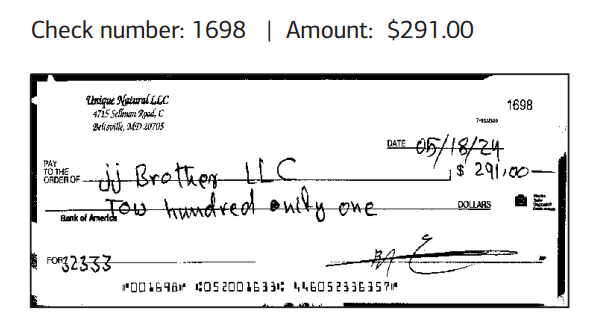 Check number: 1698 | Amount: $291.00
Unique Natural LLC
4715 Sellman Road, C
Beltsville, MD 20705
1698
DATE 05/18/24
PAY
TO THE
ORDER OF jj Brother LLC $ 291.00
Tow hundred only one DOLLARS
Bank of America
FOR 32333
⑈001698⑈ ⑆052001633⑆ 446052336357⑈